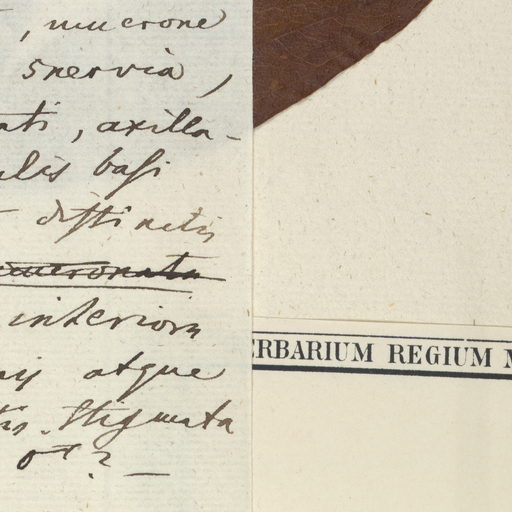 , mucrone
5nervia,
ati, axilla-
ulis basi
distinctis
mucronata
interiora
atque
tis. Stigmata
ot? —
ERBARIUM REGIUM M